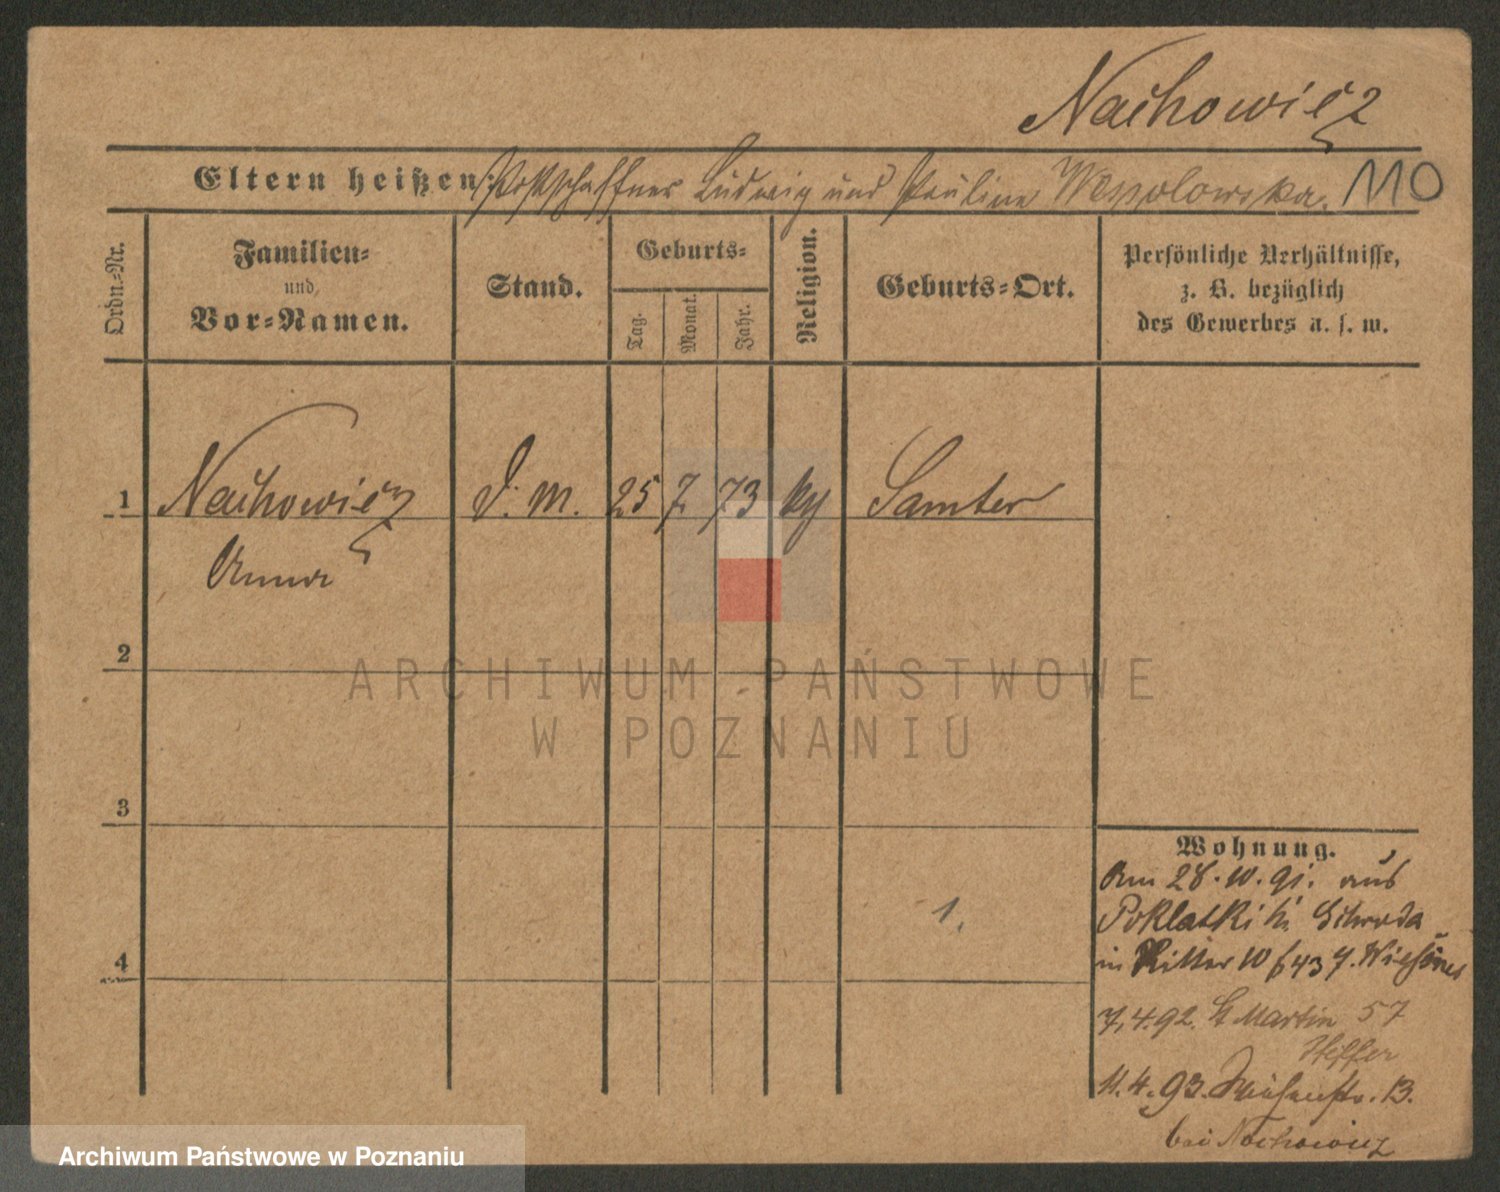 Nachowicz
Eltern heißen: Postschaffner Ludwig und Pauline Wessolowska. 110
Ordn.-Nr.
Familien-
und
Vor-Namen.
Stand.
Geburts-
Tag.
Monat.
Jahr.
Religion.
Geburts-Ort.
Persönliche Verhältnisse,
z. B. bezüglich
des Gewerbes u. s. w.
1 Nachowicz D. M. 25 7 73 Samter
Anna
2
3
4
1.
Wohnung.
Am 28. 10. 91. aus
Poklatki Schroda
in Ritter 10
7.4.92. St Martin 57
11.4.93. 13.
bei Nachowicz
ARCHIWUM PAŃSTWOWE
W POZNANIU
Archiwum Państwowe w Poznaniu